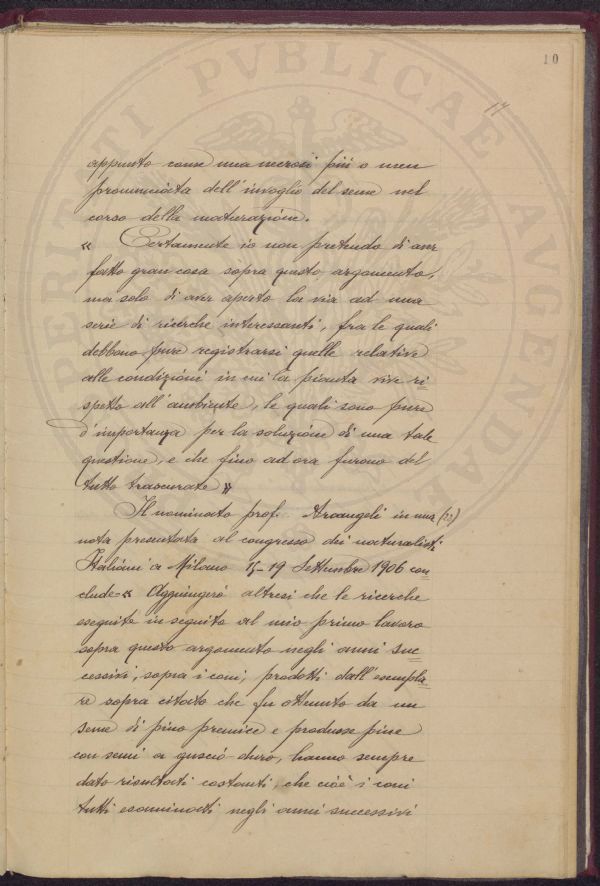 10
17
PERITATI PVBLICAE AVGENDAE
appunto come una necrosi più o men
pronunciata dell'invoglio del seme nel
corso della maturazione.
« Certamente io non pretendo di aver
fatto gran cosa sopra questo argomento,
ma solo di aver aperto la via ad una
serie di ricerche interessanti, fra le quali
debbono pure registrarsi quelle relative
alle condizioni in cui la pianta vive ri-
spetto all'ambiente, le quali sono pure
d'importanza per la soluzione di una tale
questione, e che fino ad ora furono del
tutto trascurate »
Il nominato prof. Arcangeli in una (20)
nota presentata al congresso dei naturalisti
Italiani a Milano 15-19 Settembre 1906 con
clude « Aggiungerò altresì che le ricerche
eseguite in seguito al mio primo lavoro
sopra questo argomento negli anni suc=
cessivi, sopra i coni, prodotti dall'esempla=
re sopra citato che fu ottenuto da un
seme di pino premice e produsse pine
con semi a guscio duro, hanno sempre
dato risultati costanti, che cioè i coni
tutti esaminati negli anni successivi